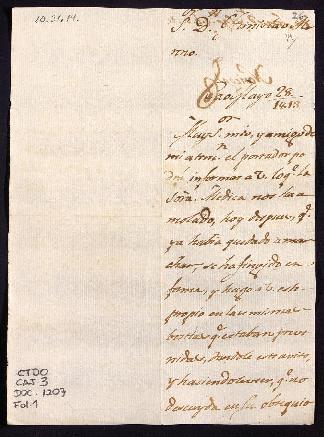 10.31.14.
S.r D. Bartolomé
Mayo 28
1813
Muy S. mio, y amigo de
mi atn.: el portador po
drá informar a V. lo q.e la
Sora. Medica nos ha
molado, hoy despues q.e
ya habia quedado a mar
char, se ha fingido en
ferma, y hago a V. este
propio en las mismas
bestias q.e estaban preve
nidas, dandole este aviso,
y haciendole ver, q.e no
descuyda en su obsequio
CTDO
CAJ 3
DOC. 1207
Fol. 1